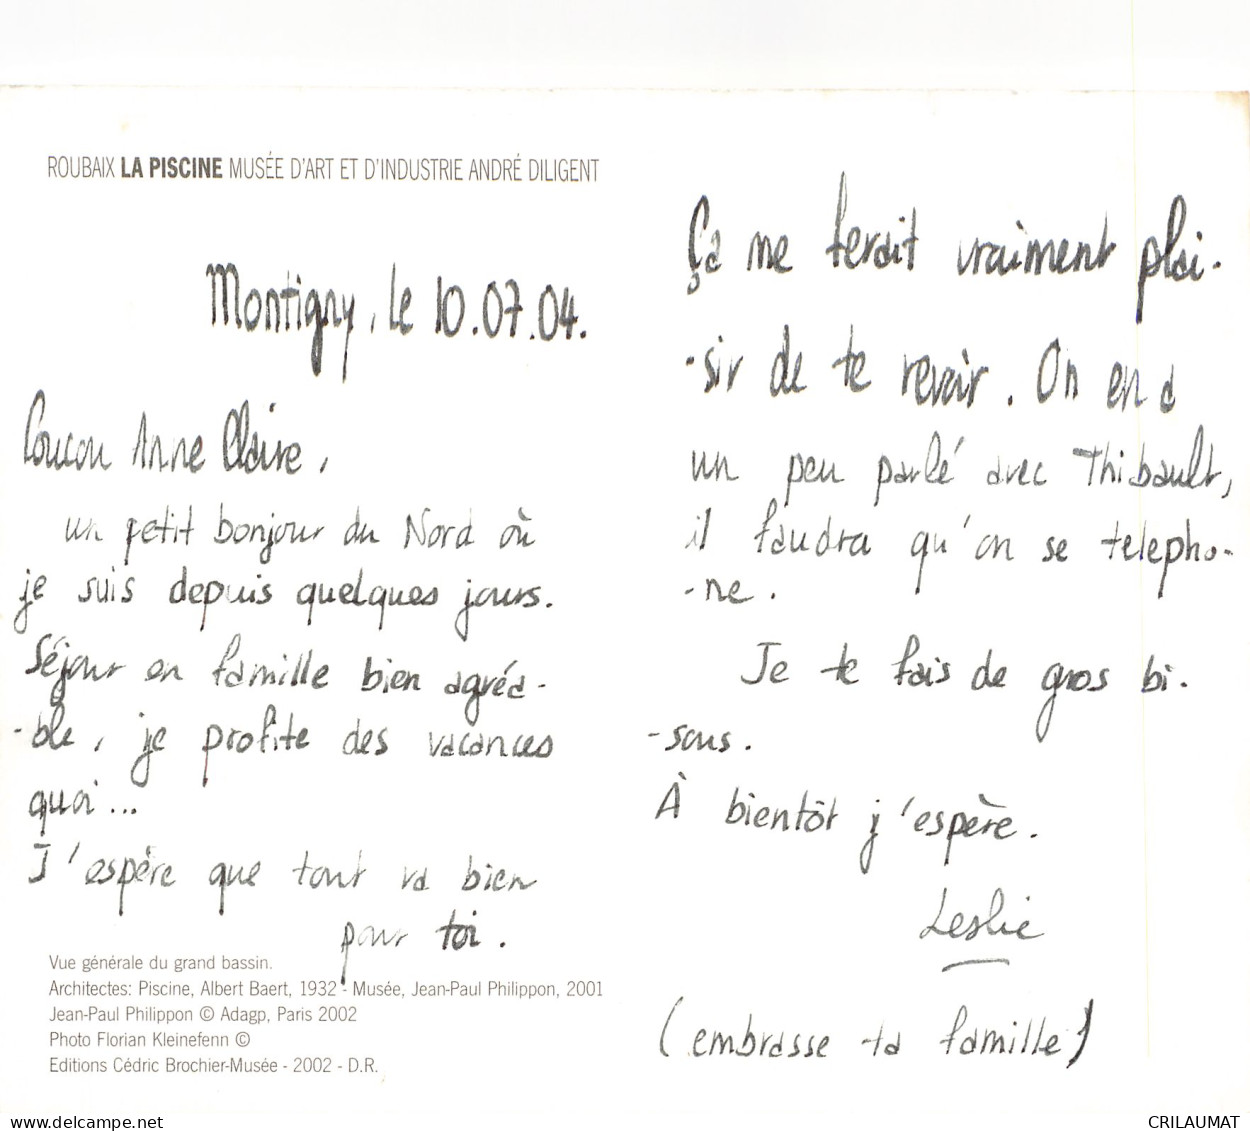 ROUBAIX LA PISCINE MUSÉE D'ART ET D'INDUSTRIE ANDRÉ DILIGENT
Montigny, le 10.07.04.
Coucou Anne Claire,
un petit bonjour du Nord où
je suis depuis quelques jours.
Séjour en famille bien agréa-
-ble, je profite des vacances
quoi...
J'espère que tout va bien
pour toi.
Vue générale du grand bassin.
Architectes: Piscine, Albert Baert, 1932 - Musée, Jean-Paul Philippon, 2001
Jean-Paul Philippon © Adagp, Paris 2002
Photo Florian Kleinefenn ©
Editions Cédric Brochier-Musée - 2002 - D.R.
Ça me ferait vraiment plai-
-sir de te revoir. On en a
un peu parlé avec Thibault,
il faudra qu'on se telepho-
-ne.
Je te fais de gros bi-
-sous.
À bientôt j'espère.
Leslie
(embrasse ta famille)
www.delcampe.net
CRILAUMAT